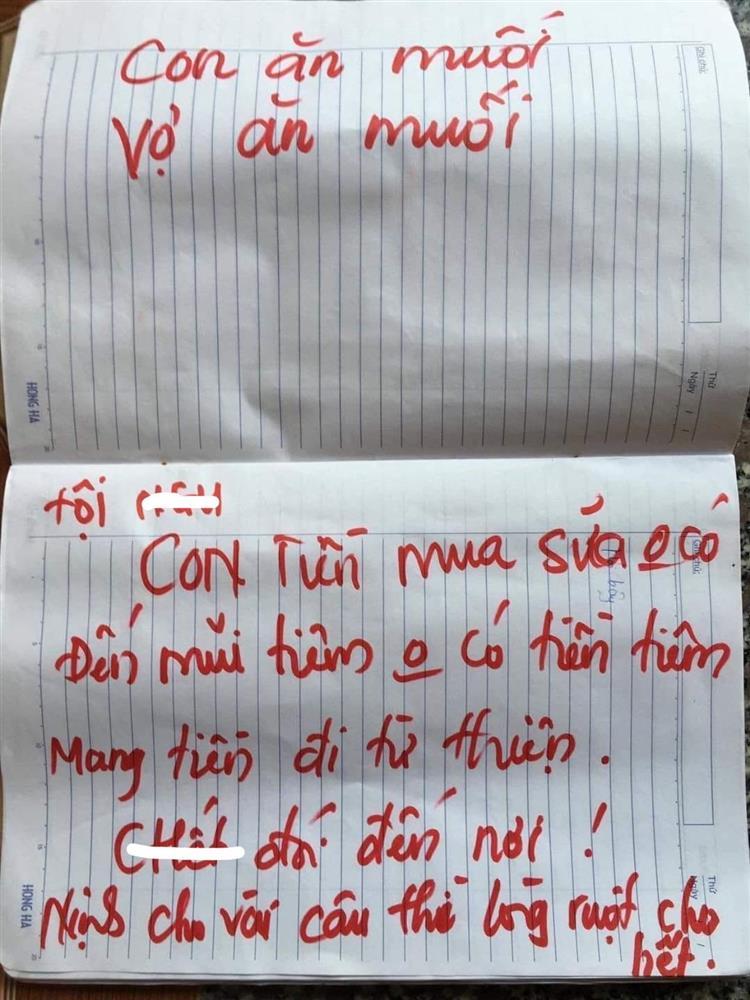 Con ăn muối
Vợ ăn muối
Ghi chú
Thứ
Ngày / /
HONG HA
tội
Con Tiền mua sữa o có
Đến mũi tiêm o có tiền tiêm
Mang tiền đi từ thiện.
đó đến nơi!
Nịnh cho vài câu thì lòng ruột cho
hết.
Ghi chú
Thứ
Ngày /
HONG HA